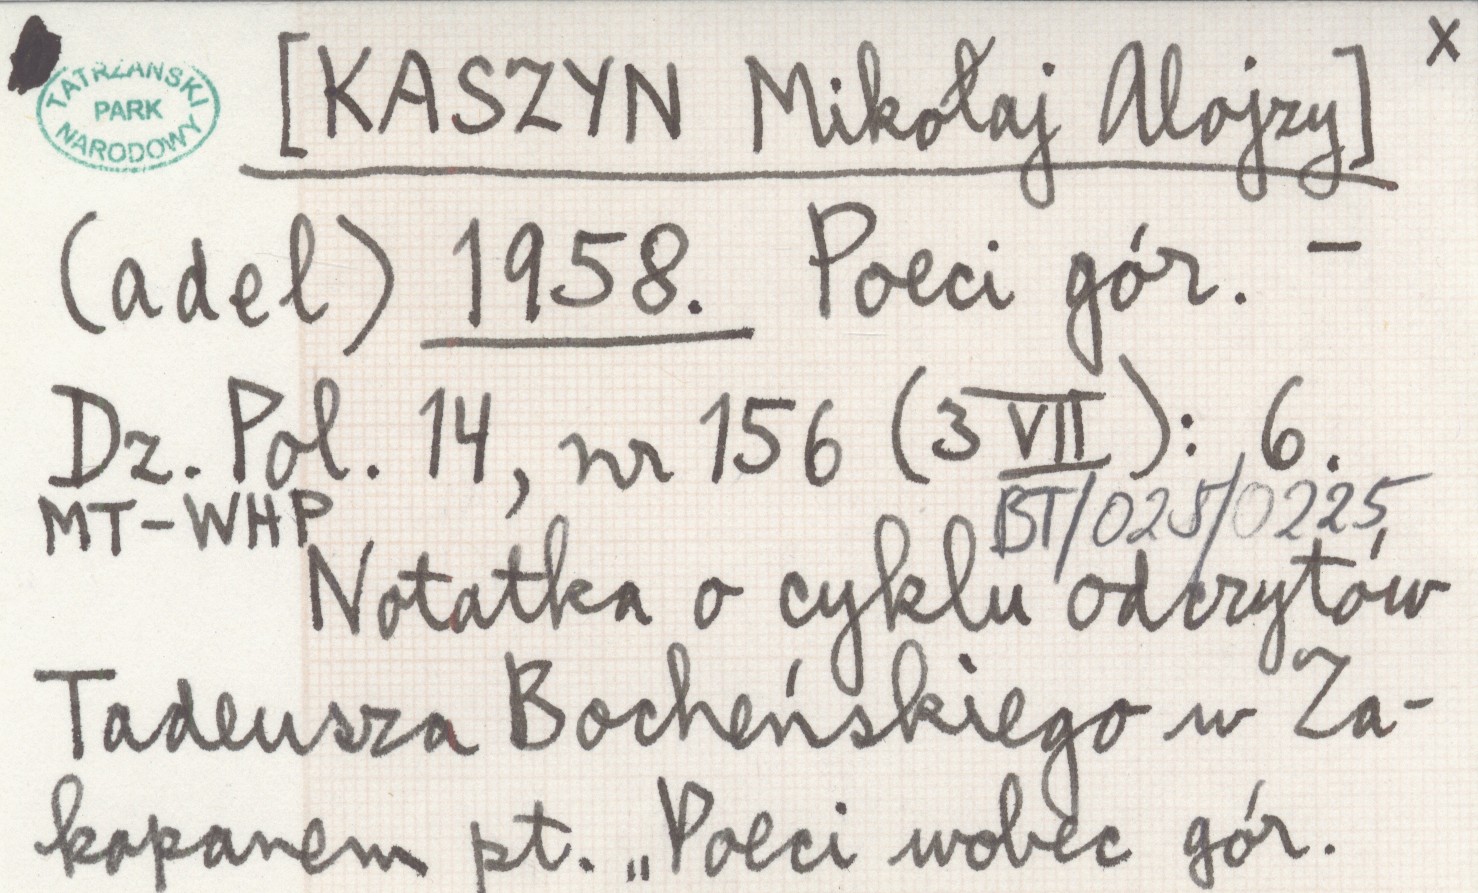 TATRZAŃSKI
PARK
NARODOWY
[KASZYN Mikołaj Alojzy] x
(adel) 1958. Poeci gór. –
Dz. Pol. 14, nr 156 (3 VII): 6.
MT-WHP BT/025/0225
Notatka o cyklu odczytów
Tadeusza Bocheńskiego w Za-
kopanem pt. „Poeci wobec gór.